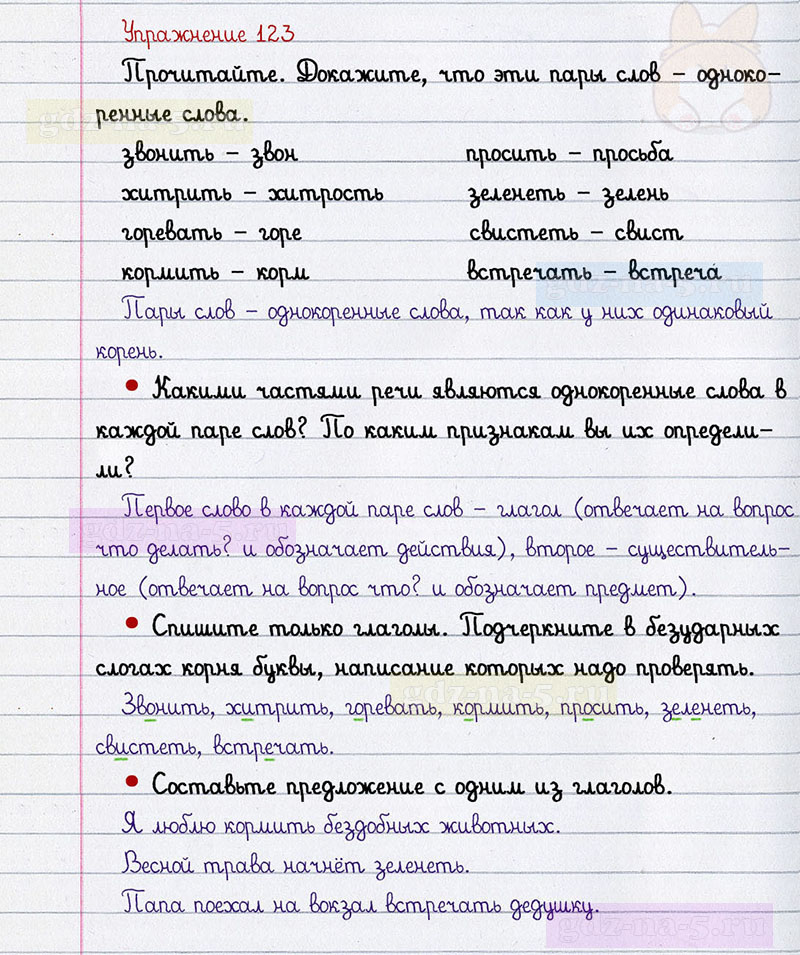 Упражнение 123
Прочитайте. Докажите, что эти пары слов – одноко-
ренные слова.
gdz-na-5.ru
звонить – звон просить – просьба
хитрить – хитрость зеленеть – зелень
горевать – горе свистеть – свист
кормить – корм встречать – встреча
gdz-na-5.ru
Пары слов – однокоренные слова, так как у них одинаковый
корень.
• Какими частями речи являются однокоренные слова в
каждой паре слов? По каким признакам вы их определи-
ли?
Первое слово в каждой паре слов – глагол (отвечает на вопрос
gdz-na-5.ru
что делать? и обозначает действия), второе – существитель-
ное (отвечает на вопрос что? и обозначает предмет).
• Спишите только глаголы. Подчеркните в безударных
слогах корня буквы, написание которых надо проверять.
gdz-na-5.ru
Звонить, хитрить, горевать, кормить, просить, зеленеть,
свистеть, встречать.
• Составьте предложение с одним из глаголов.
Я люблю кормить бездобных животных.
Весной трава начнёт зеленеть.
Папа поехал на вокзал встречать дедушку.
gdz-na-5.ru